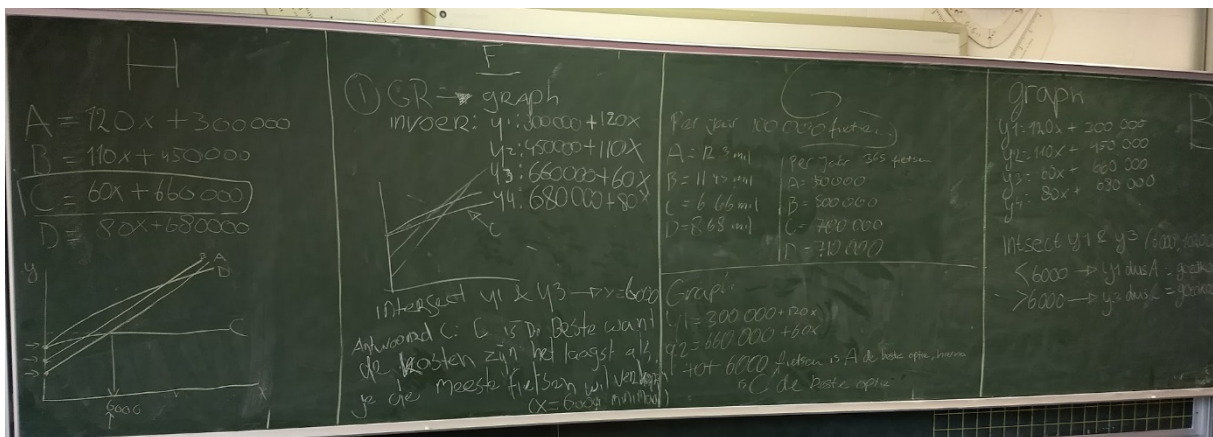 H
A = 120x + 300000
B = 110x + 450000
C = 60x + 660000
D = 80x + 680000
y
A
D
C
x
6000
F
① GR → graph
invoer: y1: 300000 + 120x
y2: 450000 + 110x
y3: 660000 + 60x
y4: 680000 + 80x
C
intersect y1 & y3 → x=6000
Antwoord C: C is De Beste want
de kosten zijn het laagst als
je de meeste fietsen wil
(x=6000 minimaal)
G
Per jaar 100 000 fietsen
A = 12.3 mil
B = 11.45 mil
C = 6.66 mil
D = 8.68 mil
Per jaar 365 fietsen
B = 500000
D = 710000
Graph
y1 = 300.000 + 120x
y2 = 660.000 + 60x
tot 6000 fietsen is A de beste optie, hierna
is C de beste optie
graph
y1 = 120x + 300 000
y2 = 110x + 450 000
y3 = 60x + 660 000
y4 = 80x + 680 000
Intsect y1 & y3 (6000,
< 6000 → y1 dus A =
> 6000 →